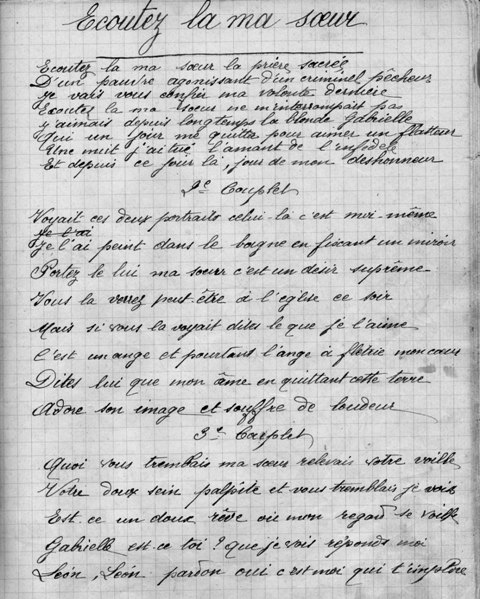 Ecoutez la ma sœur
Ecoutez la ma sœur la prière sacrée
D'un pauvre agonissant d'un criminel pêcheur
Je vais vous confier ma volonte dernière
Ecoutez la ma sœur ne m'interrompait pas
J'aimais depuis longtemps la blonde Gabrielle
Qui un jour me quitta pour aimer un flatteur
Une nuit j'ai tué l'amant de l'infidele
Et depuis ce jour là, jour de mon deshonneur
2e Couplet
Voyait ces deux portraits celui-là c'est moi-même
Je l'ai
Je l'ai peint dans le bagne en fixant un miroir
Portez le lui ma sœur c'est un désir suprême
Vous la verrez peut-être à l'eglise ce soir
Mais si vous la voyait dites le que je l'aime
C'est un ange et pourtant l'ange à flétrie mon cœur
Dites lui que mon âme en quittant cette terre
Adore son image et souffre de
3e Couplet
Quoi vous tremblais ma sœur relevais votre voille
Votre doux sein palpite et vous tremblais je vois
Est-ce un doux rêve où mon regard se voille
Gabrielle est-ce toi ? que je vois réponds moi
Léon, Léon pardon oui c'est moi qui t'implore